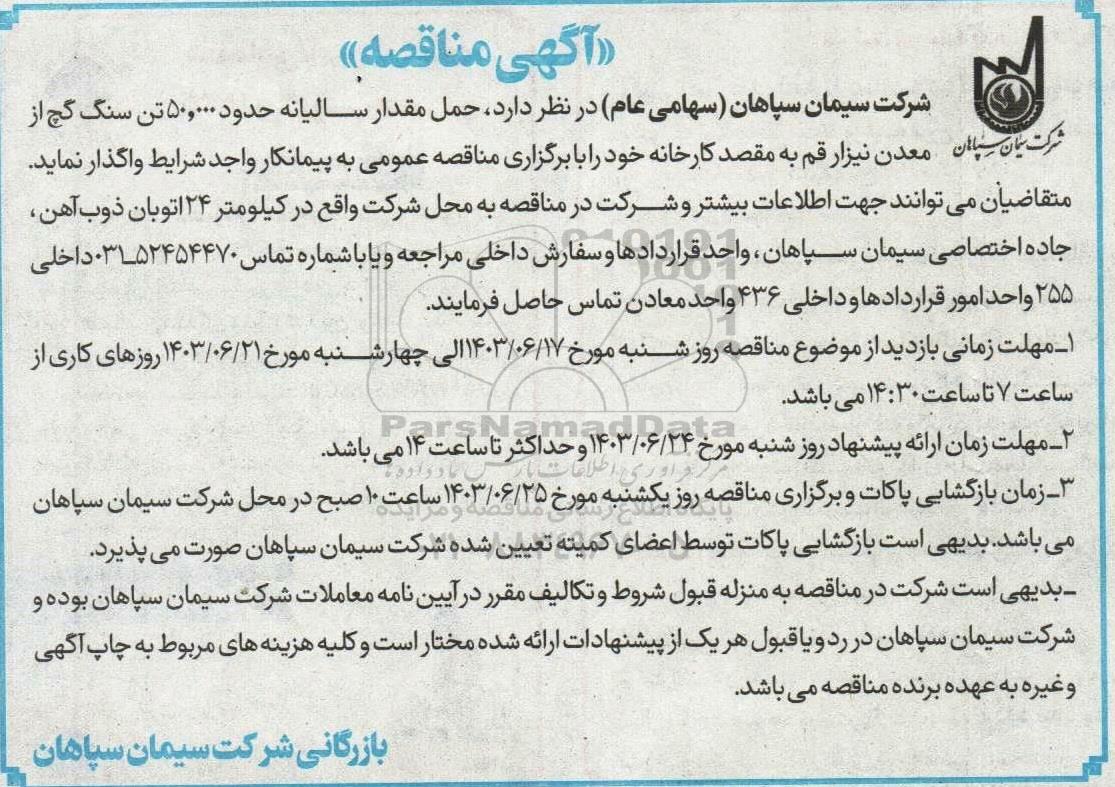 «آگهی مناقصه»
شرکت سیمان سپاهان
شرکت سیمان سپاهان (سهامی عام) در نظر دارد، حمل مقدار سالیانه حدود ۵۰٫۰۰۰ تن سنگ گچ از
معدن نیزار قم به مقصد کارخانه خود را با برگزاری مناقصه عمومی به پیمانکار واجد شرایط واگذار نماید.
متقاضیان می توانند جهت اطلاعات بیشتر و شرکت در مناقصه به محل شرکت واقع در کیلومتر ۲۴ اتوبان ذوب آهن ،
جاده اختصاصی سیمان سپاهان ، واحد قراردادها و سفارش داخلی مراجعه و یا با شماره تماس ۵۲۴۵۴۴۷۰ـ۰۳۱ داخلی
۲۵۵ واحد امور قراردادها و داخلی ۴۳۶ واحد معادن تماس حاصل فرمایند.
۱ـ مهلت زمانی بازدید از موضوع مناقصه روز شنبه مورخ ۱۴۰۳/۰۶/۱۷ الی چهارشنبه مورخ ۱۴۰۳/۰۶/۲۱ روزهای کاری از
ساعت ۷ تا ساعت ۱۴:۳۰ می باشد.
ParsNamadData
۲ـ مهلت زمان ارائه پیشنهاد روز شنبه مورخ ۱۴۰۳/۰۶/۲۴ و حداکثر تا ساعت ۱۴ می باشد.
۳ـ زمان بازگشایی پاکات و برگزاری مناقصه روز یکشنبه مورخ ۱۴۰۳/۰۶/۲۵ ساعت ۱۰ صبح در محل شرکت سیمان سپاهان
پایگاه اطلاع رسانی مناقصه و مزایده
می باشد. بدیهی است بازگشایی پاکات توسط اعضای کمیته تعیین شده شرکت سیمان سپاهان صورت می پذیرد.
ـ بدیهی است شرکت در مناقصه به منزله قبول شروط و تکالیف مقرر در آیین نامه معاملات شرکت سیمان سپاهان بوده و
شرکت سیمان سپاهان در رد و یا قبول هر یک از پیشنهادات ارائه شده مختار است و کلیه هزینه های مربوط به چاپ آگهی
و غیره به عهده برنده مناقصه می باشد.
بازرگانی شرکت سیمان سپاهان